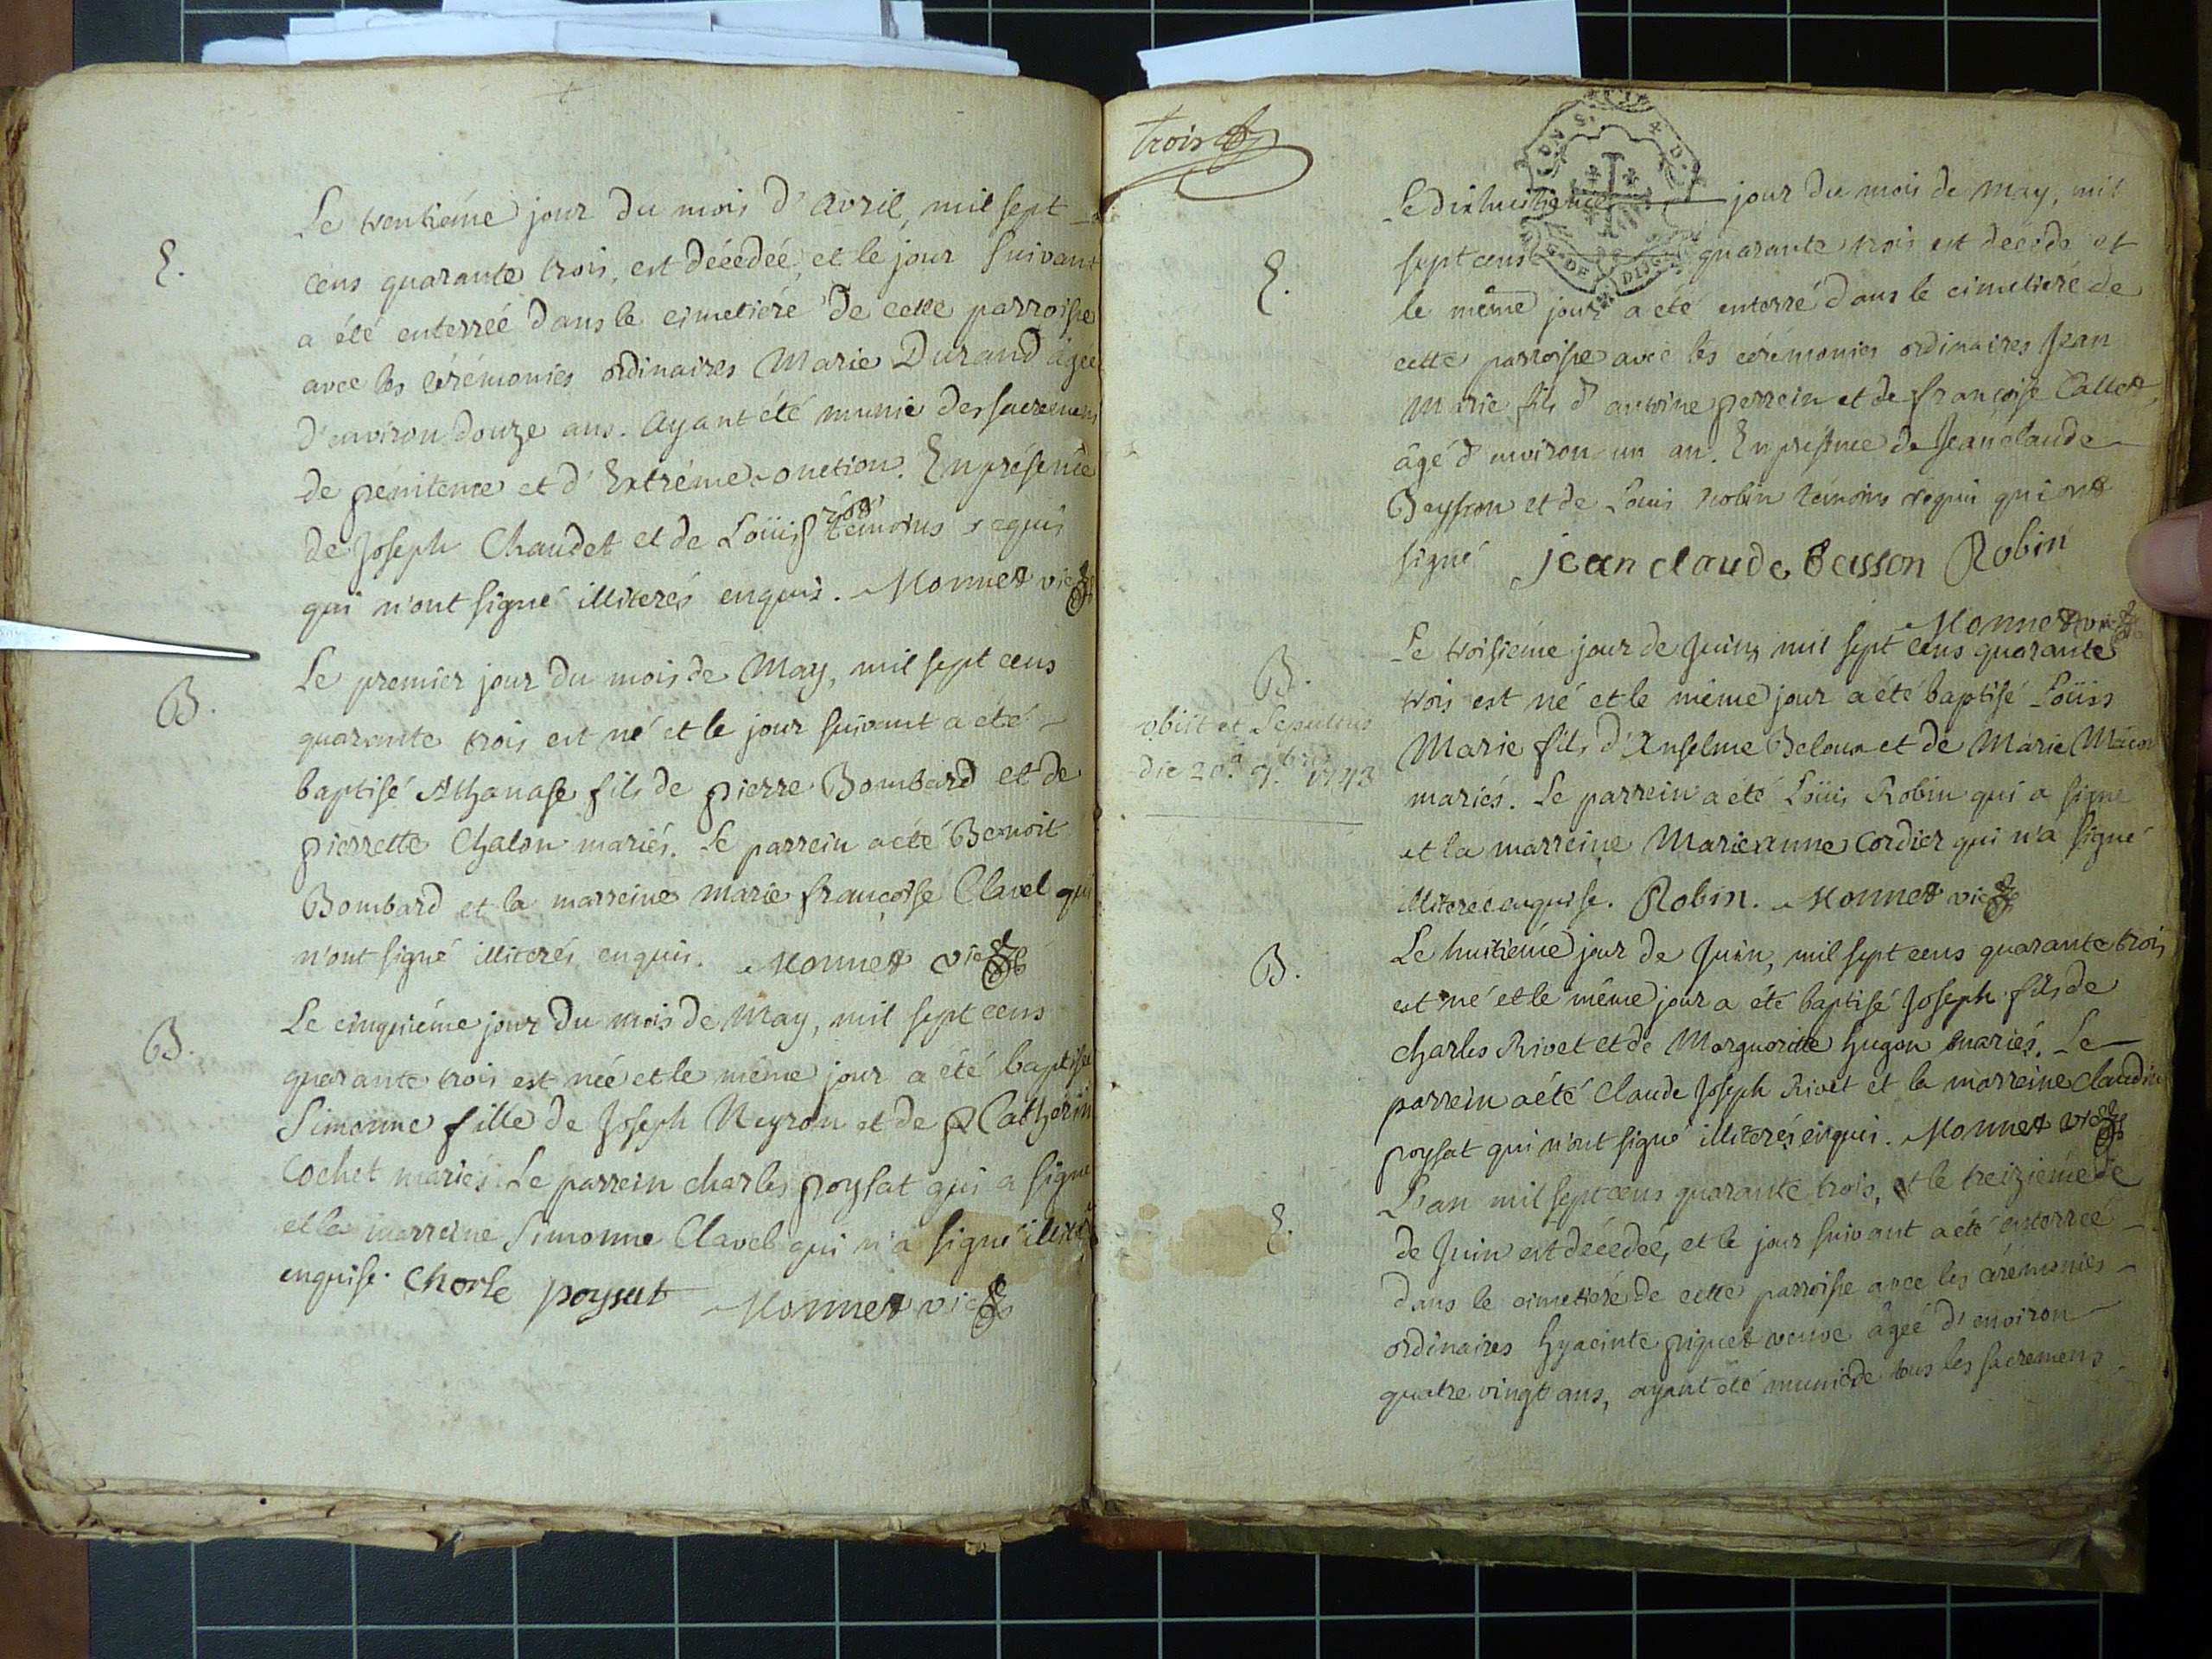 E.
Le trentiéme jour du mois d'avril, mil sept
cens quarante trois, est décédeé, et le jour suivant
a été enterreé dans le cimetiére de cette parroisse
avec les cérémonies ordinaires Marie Durand ageé
d'environ douze ans. ayant été munie des sacremens
de penitence et d'Extréme-onction. En présence
de Joseph Chaudet et de Loüis témoins requis
qui n'ont signé illiterés enquis. Monnet vic
B.
Le premier jour du mois de May, mil sept cens
quarante trois est né et le jour suivant a été
baptisé Athanase fils de pierre Bombard et de
pierrette Chalon mariés. Le parrein a été Benoit
Bombard et la marreine marie françoise Clavel qui
n'ont signé illiterés enquis. Monnet vic
B.
Le cinquiéme jour du mois de May, mil sept cens
quarante trois est neé et le même jour a été baptisé
Simonne fille de Joseph Neyron et de Catherin
Cochet mariés. Le parrein charles poysat qui a signe
et la marreine Simonne Clavel qui n'a signé
enquise. Charle poysat Monnet vic
trois
E.
Le dixhuitiéme jour du mois de may, mil
sept cens quarante trois est décédé et
le même jour a été enterré dans le cimetiere de
cette parroisse avec les cérémonies ordinaires Jean
Marie fils d'antoine perrein et de françoise
âgé d'environ un an. En présence de Jean claude
Beysson et de Louis robin témoins requis qui ont
signé jean claude Beisson Robin
Monnet vic
B.
obiit et Sepultus
die 20.a 9.bris 1743
Le troisiéme jour de Juin, mil sept cens quarante
trois est né et le même jour a été baptisé Loüis
Marie fils d'Anselme et de Marie
mariés. Le parrein a été Loüis Robin qui a signé
et la marreine Marieanne Cordier qui n'a signé
illitereé enquise. Robin. Monnet vic
B.
Le huitiéme jour de Juin, mil sept cens quarante trois
est né et le même jour a été baptisé Joseph fils de
charles Rivet et de Marguoritte hugon mariés. Le
parrein a été Claude Joseph Rivet et la marreine Claudine
poysat qui n'ont signé illiterés enquis. Monnet vic
E.
L'an mil sept cens quarante trois, et le treiziéme de
de Juin est décédeé, et le jour suivant a été enterreé
dans le cimetiére de cette parroisse avec les cérémonies
ordinaires hyacinte piquet veuve âgeé d'environ
quatre vingt ans, ayant été munie de tous les sacremens